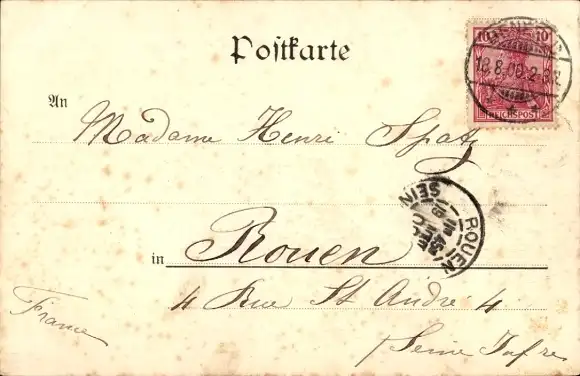 Postkarte
10 10
18.8.00.2-3N.
REICHSPOST
An
Madame Henri Spatz
ROUEN
SEINE
in Rouen
4 Rue St André 4
France
Seine Infre